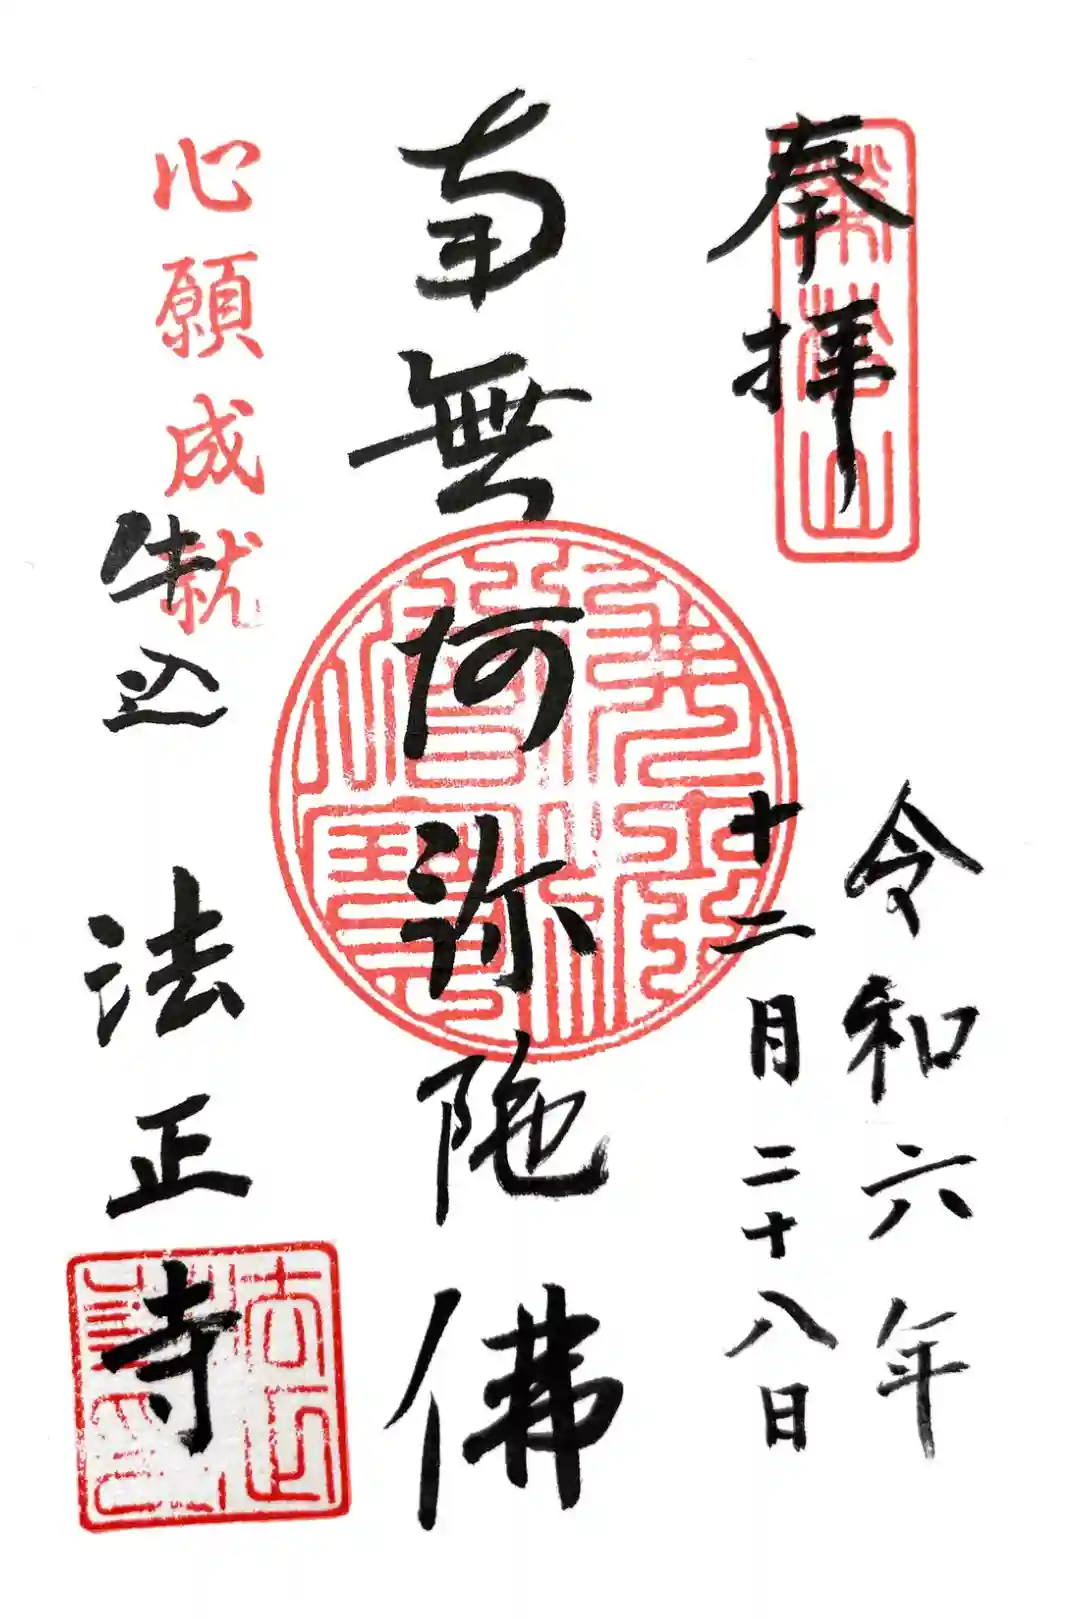 奉拝
令和六年
十二月二十八日
南無阿弥陀佛
心願成就
牛込
法正寺